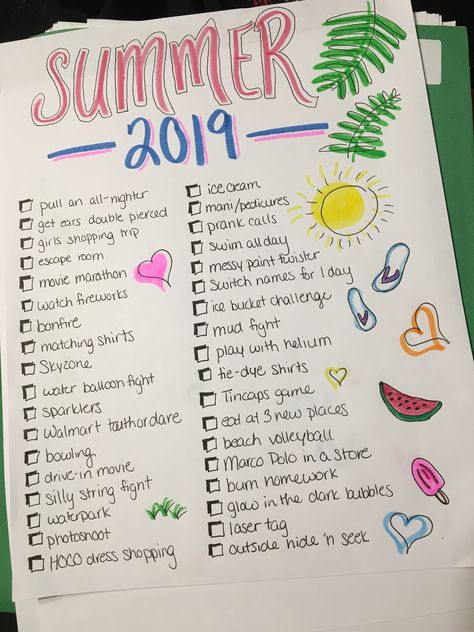 SUMMER
2019
pull an all-nighter
get ears double pierced
girls shopping trip
escape room
movie marathon
watch fireworks
bonfire
matching shirts
Skyzone
water balloon fight
sparklers
Walmart truth or dare
bowling
drive-in movie
silly string fight
waterpark
photoshoot
HOCO dress shopping
ice cream
mani/pedicures
prank calls
swim all day
messy paint twister
Switch names for 1 day
ice bucket challenge
mud fight
play with helium
tie-dye shirts
Tincaps game
eat at 3 new places
beach volleyball
Marco Polo in a store
burn homework
glow in the dark bubbles
laser tag
outside hide 'n seek